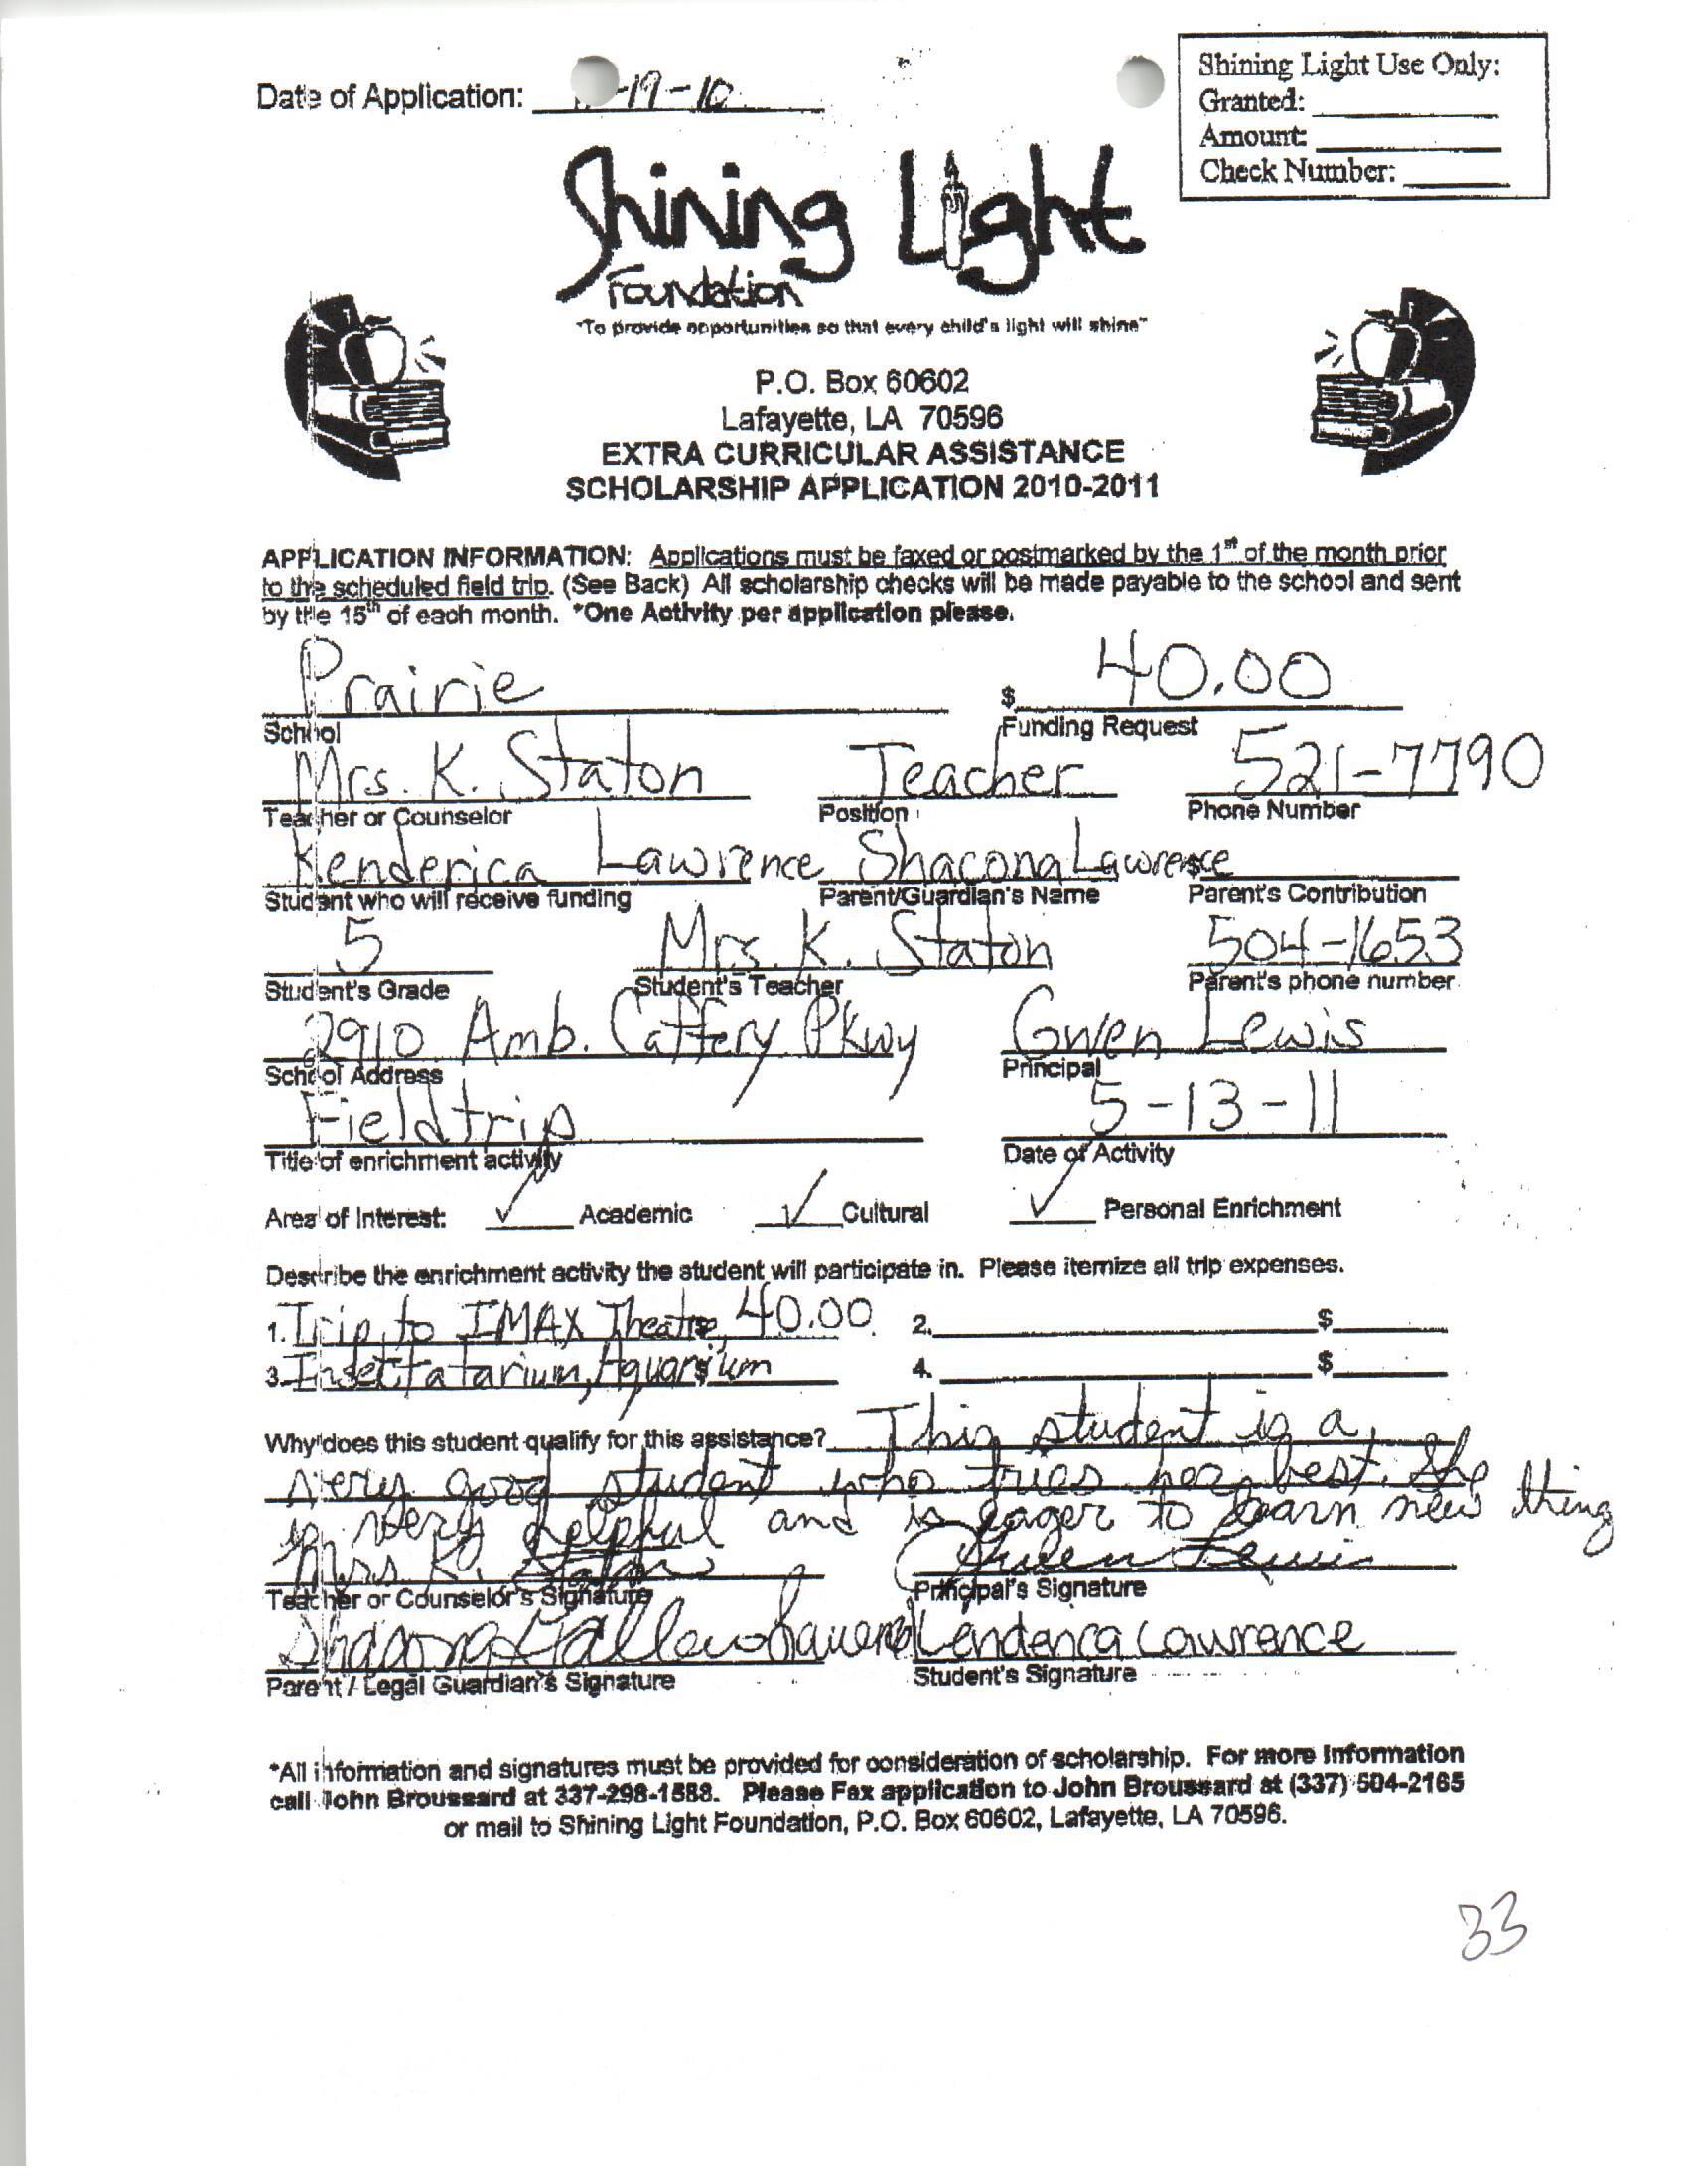 Date of Application: -19-10
Shining Light Use Only:
Granted:
Amount:
Check Number:
Shining Light
Foundation
"To provide opportunities so that every child's light will shine"
P.O. Box 60602
Lafayette, LA 70596
EXTRA CURRICULAR ASSISTANCE
SCHOLARSHIP APPLICATION 2010-2011
APPLICATION INFORMATION: Applications must be faxed or postmarked by the 1st of the month prior
to the scheduled field trip. (See Back) All scholarship checks will be made payable to the school and sent
by the 15th of each month. *One Activity per application please.
Prairie $ 40.00
School Funding Request
Mrs. K. Staton Teacher 521-7790
Teacher or Counselor Position Phone Number
Kenderica Lawrence Shacona Lawrence
Student who will receive funding Parent/Guardian's Name Parent's Contribution
5 Mrs. K. Staton 504-1653
Student's Grade Student's Teacher Parent's phone number
2910 Amb. Caffery Pkwy Gwen Lewis
School Address Principal
Fieldtrip 5-13-11
Title of enrichment activity Date of Activity
Area of Interest: ✓ Academic ✓ Cultural ✓ Personal Enrichment
Describe the enrichment activity the student will participate in. Please itemize all trip expenses.
1. Trip to IMAX Theatre, 40.00 2. $
3. Insectatarium, Aquarium 4. $
Why does this student qualify for this assistance? This student is a
very good student who tries her best. She
is very helpful and is eager to learn new thing
Mrs K. Staton Gwen Lewis
Teacher or Counselor's Signature Principal's Signature
Shacona Lawrence Kenderica Lawrence
Parent / Legal Guardian's Signature Student's Signature
*All information and signatures must be provided for consideration of scholarship. For more Information
call John Broussard at 337-298-1588. Please Fax application to John Broussard at (337) 504-2165
or mail to Shining Light Foundation, P.O. Box 60602, Lafayette, LA 70596.
33